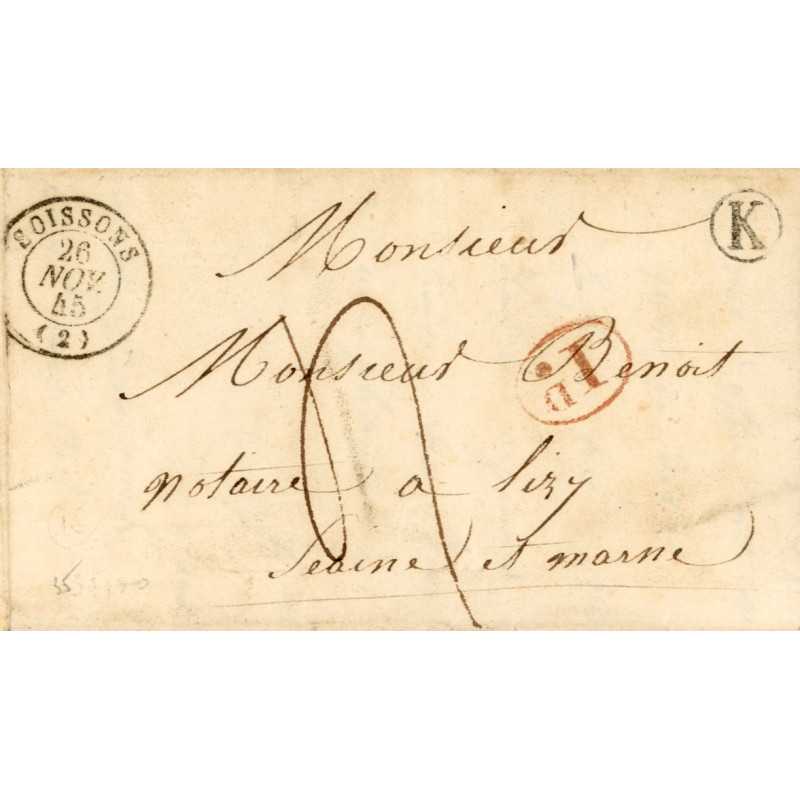 SOISSONS
26
NOV.
45
(2)
K
Monsieur
Monsieur Benoit
1D
notaire a lizy
Seaine et marne